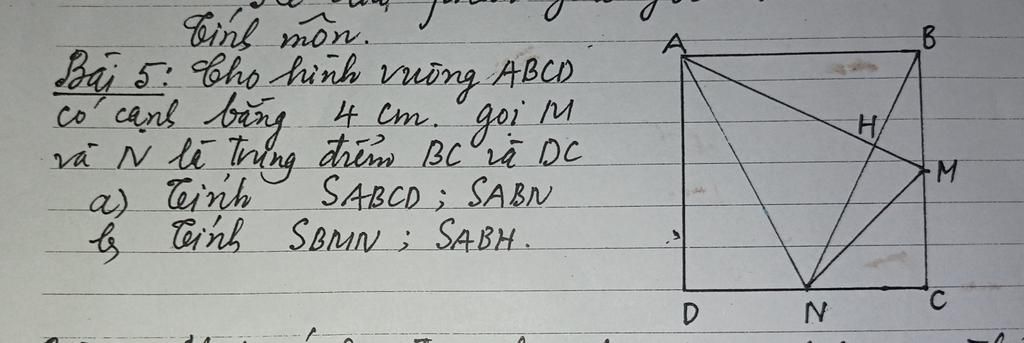 Tính môn.
Bài 5: Cho hình vuông ABCD
có cạnh bằng 4 cm. gọi M
và N là trung điểm BC và DC
a) Tính SABCD ; SABN
b) Tính SBMN ; SABH.
A
B
H
M
D
N
C